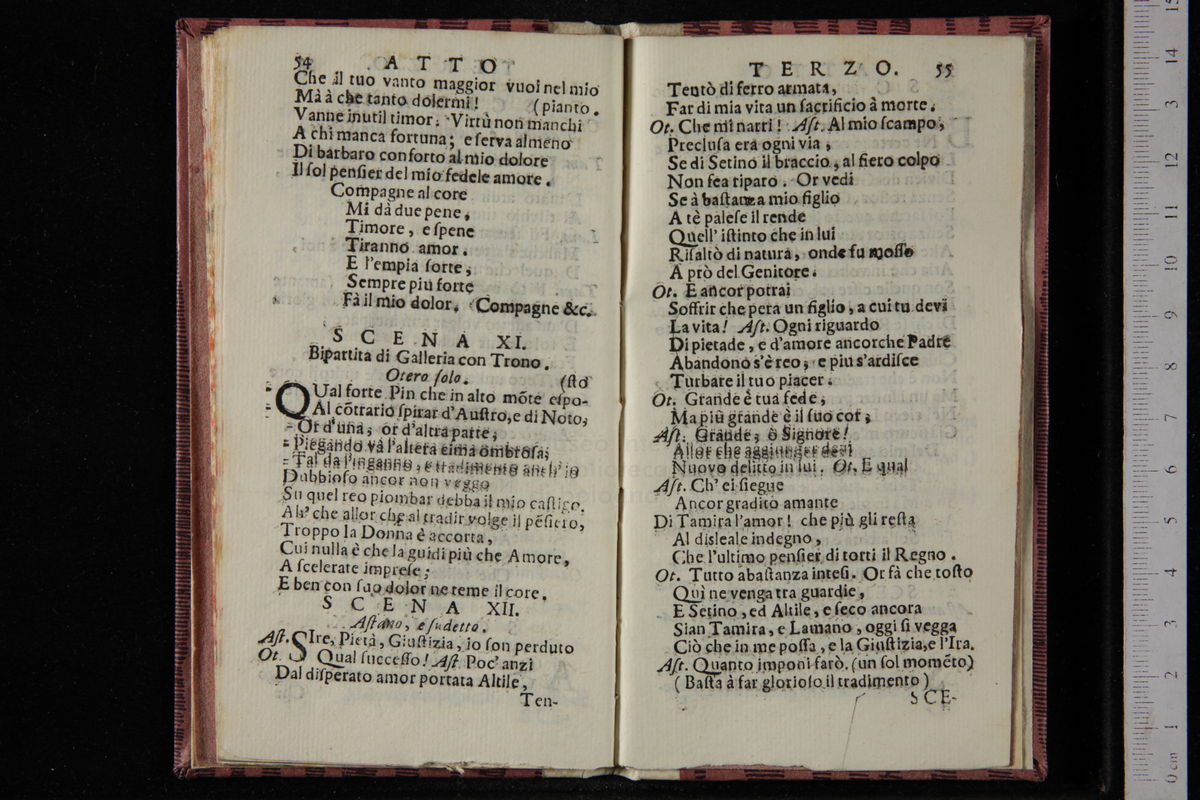 54 ATTO
Che il tuo vanto maggior vuoi nel mio
Mà à che tanto dolermi! (pianto.
Vanne inutil timor. Virtù non manchi
A chi manca fortuna; e ſerva almeno
Di barbaro conforto al mio dolore
Il ſol penſier del mio fedele amore.
Compagne al core
Mi dà due pene,
Timore, e ſpene
Tiranno amor.
E l'empia ſorte,
Sempre più forte
Fà il mio dolor. Compagne &c.
SCENA XI.
Bipartita di Galleria con Trono.
Otero ſolo. (ſto
QUal forte Pin che in alto mõte eſpo-
Al cõtrario ſpirar d'Auſtro, e di Noto,
Or d'una, or d'altra parte,
Piegando và l'altera cima ombroſa;
Tal da l'inganno, e tradimento anch'io
Dubbioſo ancor non veggo
Su quel reo piombar debba il mio caſtigo.
Ah' che allor che al tradir volge il pẽſiero,
Troppo la Donna è accorta,
Cui nulla è che la guidi più che Amore,
A ſcelerate impreſe;
E ben con ſuo dolor ne teme il core.
SCENA XII.
Aſtano, e ſudetto.
Aſt. SIre, Pietà, Giuſtizia, io ſon perduto
Ot. Qual ſucceſſo! Aſt. Poc'anzi
Dal diſperato amor portata Altile,
Ten-
TERZO. 55
Tentò di ferro armata,
Far di mia vita un ſacrificio à morte.
Ot. Che mi narri! Aſt. Al mio ſcampo,
Precluſa era ogni via,
Se di Setino il braccio, al fiero colpo
Non fea riparo. Or vedi
Se à baſtanza mio figlio
A tè paleſe il rende
Quell' iſtinto che in lui
Riſaltò di natura, onde fu moſſo
A prò del Genitore.
Ot. E ancor potrai
Soffrir che pera un figlio, a cui tu devi
La vita! Aſt. Ogni riguardo
Di pietade, e d'amore ancorche Padre
Abandono s'è reo, e piu s'ardiſce
Turbare il tuo piacer.
Ot. Grande è tua fede,
Ma più grande è il ſuo cor,
Aſt. Grande, ò Signore!
Allor che aggiunger devi
Nuovo delitto in lui. Ot. E qual
Aſt. Ch' ei ſiegue
Ancor gradito amante
Di Tamira l'amor! che più gli reſta
Al disleale indegno,
Che l'ultimo penſier di torti il Regno.
Ot. Tutto abaſtanza inteſi. Or fà che toſto
Quì ne venga tra guardie,
E Setino, ed Altile, e ſeco ancora
Sian Tamira, e Lamano, oggi ſi vegga
Ciò che in me poſſa, e la Giuſtizia, e l'Ira.
Aſt. Quanto imponi farò. (un ſol momẽto)
(Baſta à far glorioſo il tradimento)
SCE-